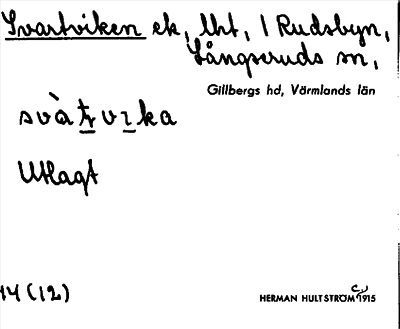 Svartviken ek, lht, 1 Rudsbyn,
Långseruds sn,
Gillbergs hd, Värmlands län
Utlagt
14 (12)
HERMAN HULTSTRÖM 1915